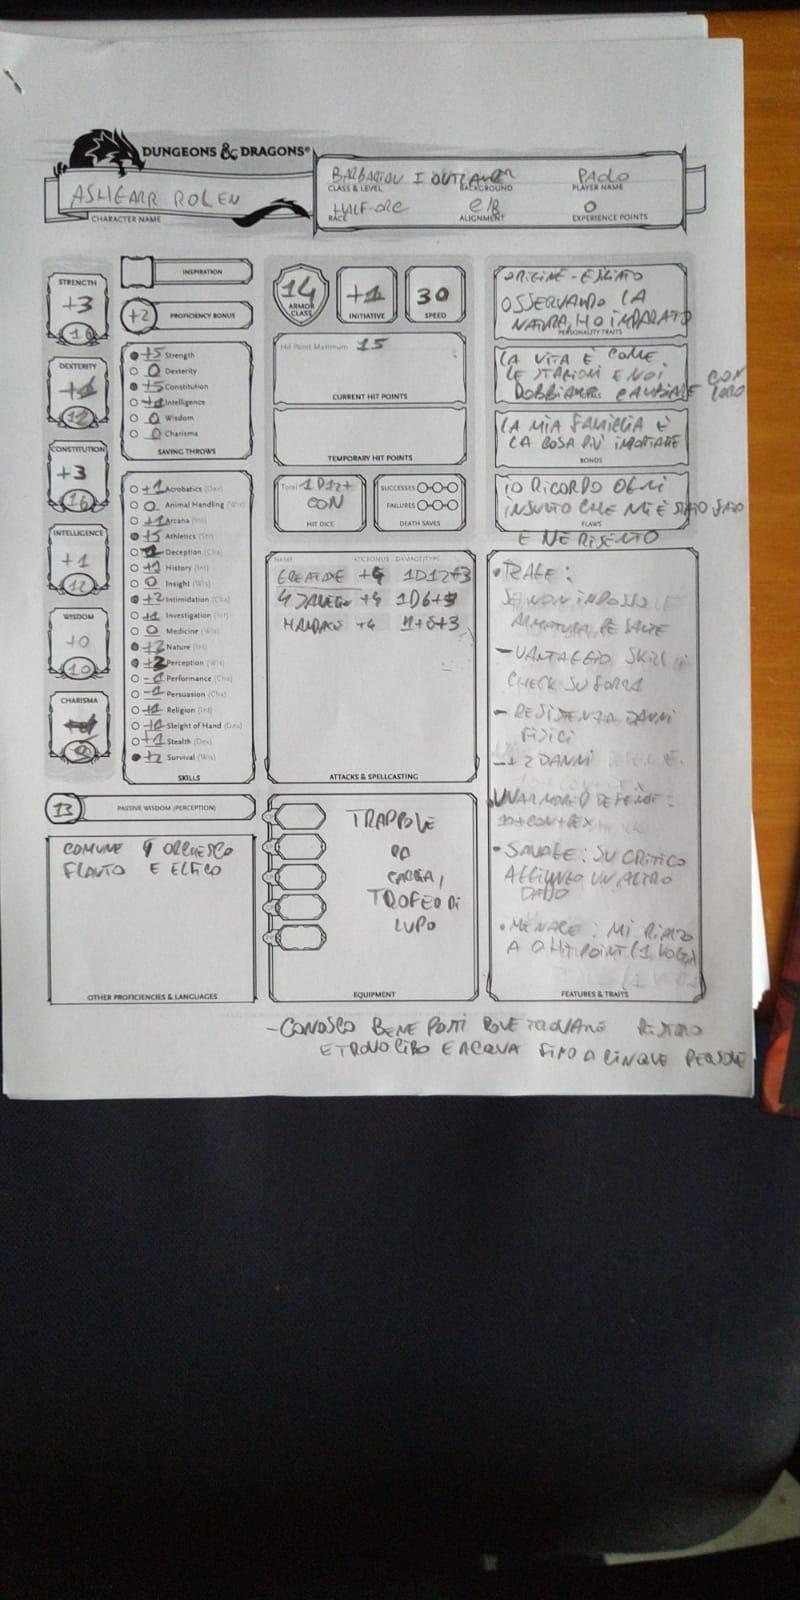 DUNGEONS & DRAGONS®
ASHEARR ROLEN
CHARACTER NAME
I OUTLANDER PAOLO
CLASS & LEVEL BACKGROUND PLAYER NAME
HALF-ORC 0
RACE ALIGNMENT EXPERIENCE POINTS
STRENGTH
+3
16
DEXTERITY
+1
12
CONSTITUTION
+3
16
INTELLIGENCE
+1
12
WISDOM
+0
10
CHARISMA
INSPIRATION
+2 PROFICIENCY BONUS
+5 Strength
0 Dexterity
+5 Constitution
+1 Intelligence
0 Wisdom
0 Charisma
SAVING THROWS
+1 Acrobatics (Dex)
0 Animal Handling (Wis)
+1 Arcana (Int)
+5 Athletics (Str)
Deception (Cha)
+1 History (Int)
0 Insight (Wis)
+2 Intimidation (Cha)
+1 Investigation (Int)
0 Medicine (Wis)
+2 Nature (Int)
Perception (Wis)
-1 Performance (Cha)
-1 Persuasion (Cha)
+1 Religion (Int)
+1 Sleight of Hand (Dex)
+1 Stealth (Dex)
+2 Survival (Wis)
SKILLS
13 PASSIVE WISDOM (PERCEPTION)
COMUNE ORCHESCO
FLAUTO E ELFICO
OTHER PROFICIENCIES & LANGUAGES
14
ARMOR CLASS
+1
INITIATIVE
30
SPEED
Hit Point Maximum 15
CURRENT HIT POINTS
TEMPORARY HIT POINTS
Total 1D12+
CON
HIT DICE
SUCCESSES
FAILURES
DEATH SAVES
NAME ATK BONUS DAMAGE/TYPE
1D12+3
4 +4 1D6+3
+4
ATTACKS & SPELLCASTING
TRAPPOLE
DA
CACCIA,
TROFEO DI
LUPO
EQUIPMENT
ORIGINE - ESILIATO
OSSERVANDO LA
NATURA, HO IMPARATO
PERSONALITY TRAITS
LA VITA È COME
LE STAGIONI E NOI
DOBBIAMO CAMBIARE CON
LORO
LA MIA FAMIGLIA È
LA COSA PIÙ IMPORTANTE
BONDS
IO RICORDO OGNI
INSULTO CHE MI È STATO
FLAWS
E NE RISENTO
• RAGE:
SE NON INDOSSO
ARMATURA PESANTE
- VANTAGGIO SKILL
CHECK SU FORZA
- RESISTENZA DANNI
FISICI
- +2 DANNI
UNARMORED DEFENSE:
10+CON+DEX
• SAVAGE: SU CRITICO
AGGIUNGO UN ALTRO
DADO
• MENACE: MI RIALZO
A 0 HIT POINT (1 VOLTA)
FEATURES & TRAITS
- CONOSCO BENE POSTI DOVE TROVARE
E TROVO CIBO E ACQUA FINO A CINQUE PERSONE